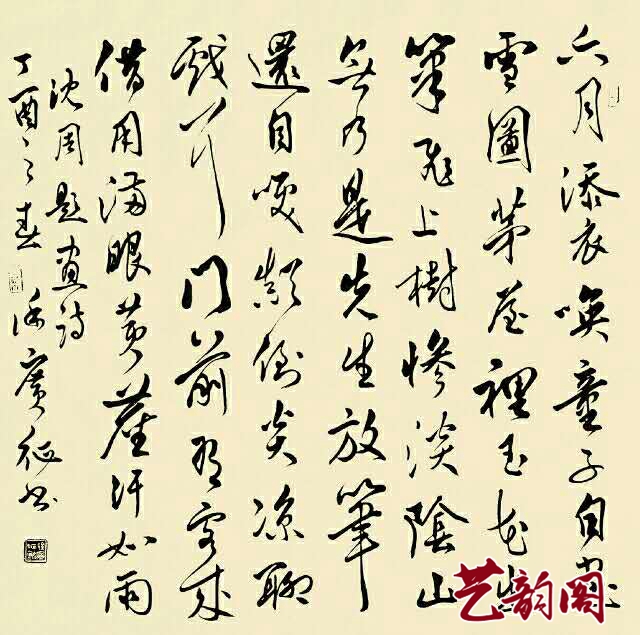 六月添衣喚童子自
雪圖茅屋裡玉花出
筆飛上樹慘淡陰山
無乃是先生放筆
還自咲顛倒炎涼聊
戲尔門前有客來
借用滿眼黃塵汗如雨
沈周題畫詩
丁酉之春 廣征書
艺韵阁